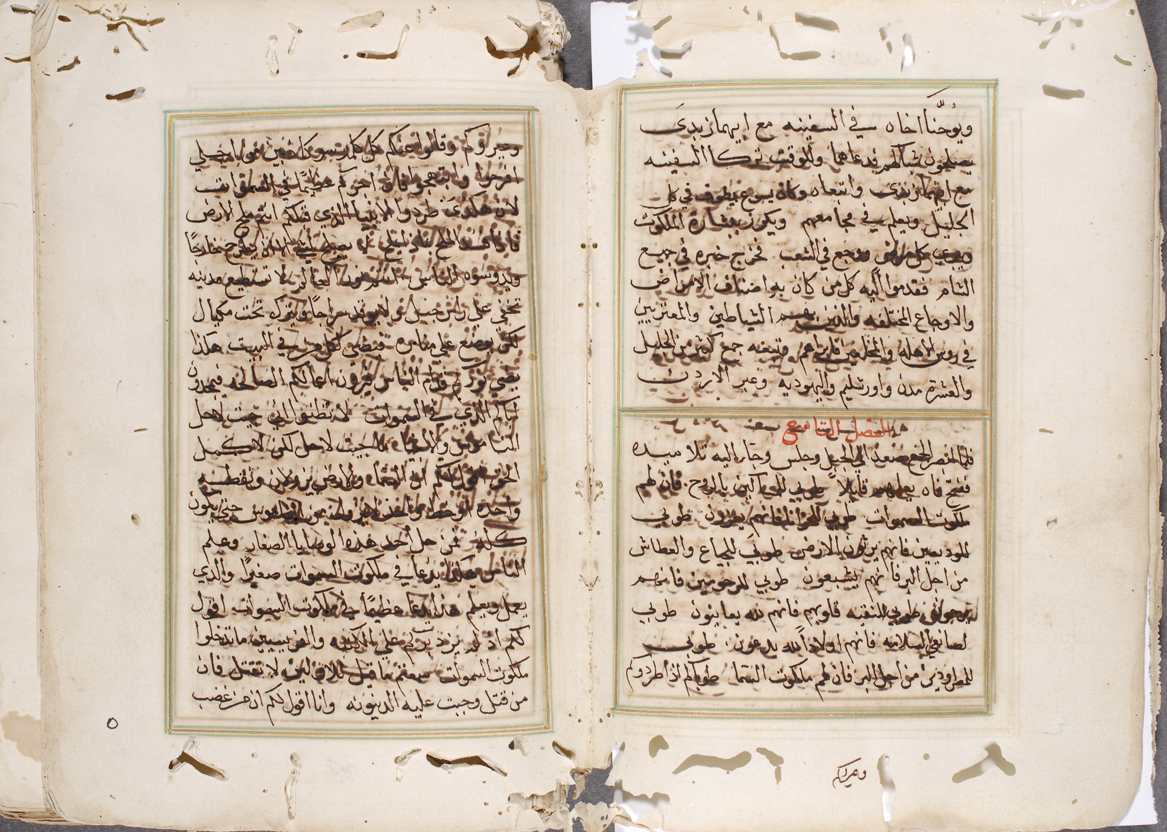 ويوحنا اخاه في السفينه مع ابيهما زبدي
يصلحون شباكهم فدعاهما وللوقت تركا السفينه
مع ابيهما زبدي واتبعاه وكان يسوع يطوف في كل
الجليل ويعلم في مجامعهم ويكرز ببشارة الملكوت
ويبري كل مرض ووجع في الشعب فخرج خبره في جميع
الشام فقدموا اليه كل من كان به اصناف الامراض
والاوجاع المختلفه والذين بهم الشياطين والمعتريين
في روس الاهله والمخلعين فابراهم وتبعه جمع كثير من الجليل
والعشر مدن واورشليم واليهوديه وعبر الاردن
الفصل التاسع
فلما ابصر الجمع صعد الي الجبل وجلس وجا اليه تلاميده
ففتح فاه يعلمهم قايلاً طوبي للمساكين بالروح فان لهم
ملكوت السموات طوبي للحزانا فانهم يعزون طوبي
للمتوديعين فانهم يرثون الارض طوبي للجياع والعطاش
من اجل البر فانهم يشبعون طوبي للرحومين فانهم
يرحمون طوبي للنقيه قلوبهم فانهم لله يعاينون طوبي
لصانعي السلامه فانهم اولاد الله يدعون طوبي
للمطرودين من اجل البر فان لهم ملكوت السما طوباكم اذا طردوكم
وعيروكم
وعيروكم وقالوا عنكم كل كلمة سو كاذبين من اجلي
افرحوا وابتهجوا فان اجركم عظيماً في السموات
لان هكذي طردوا الانبيا الذي قبلكم انتم ملح الارض
فاذا فسد الملح يملح خارجاً
وتدوسه الناس انتم نور العالم لا تستطيع مدينه
تخفي علي راس جبل ولا يوقد سراجاً ويترك تحت مكيال
لكن يوضع علي مناره فيضي لكل من في البيت هكذا
يضي نوركم قدام الناس ليرون اعمالكم الصالحه فيمجدون
اباكم الذي في السموات لا تظنوا اني جيت لاحل
الناموس ولا الانبيا ما جيت لاحل لكن لاكمل
الحق اقول لكم ان السماء والارض يزولان ونقطه
واحده من الناموس حتي يكون
كله فمن حل احدي هذه الوصايا الصغار وعلم
الناس هكذي يدعا في ملكوت السموات صغيراً والذي
يعمل ويعلم هذا يدعا عظيماً في ملكوت السموات اقول
لكم ان لم يزد بركم علي الكتبه والفريسيين ما تدخلوا
ملكوت السموات سمعتم ما قيل للاولين لا تقتل فان
من قتل وجبت عليه الدينونه وانا اقول لكم ان من غضب
٥